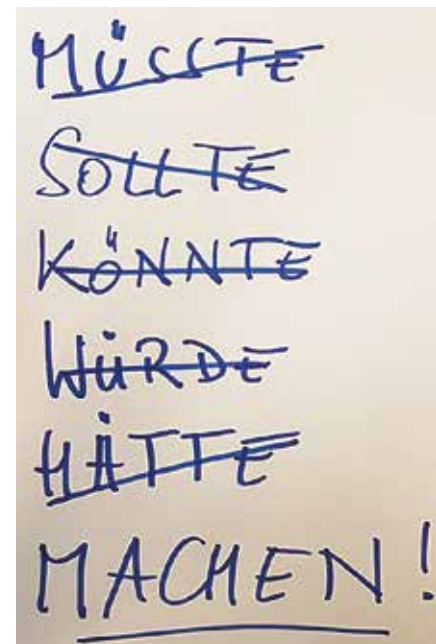 MÜSSTE
SOLLTE
KÖNNTE
WÜRDE
HÄTTE
MACHEN!